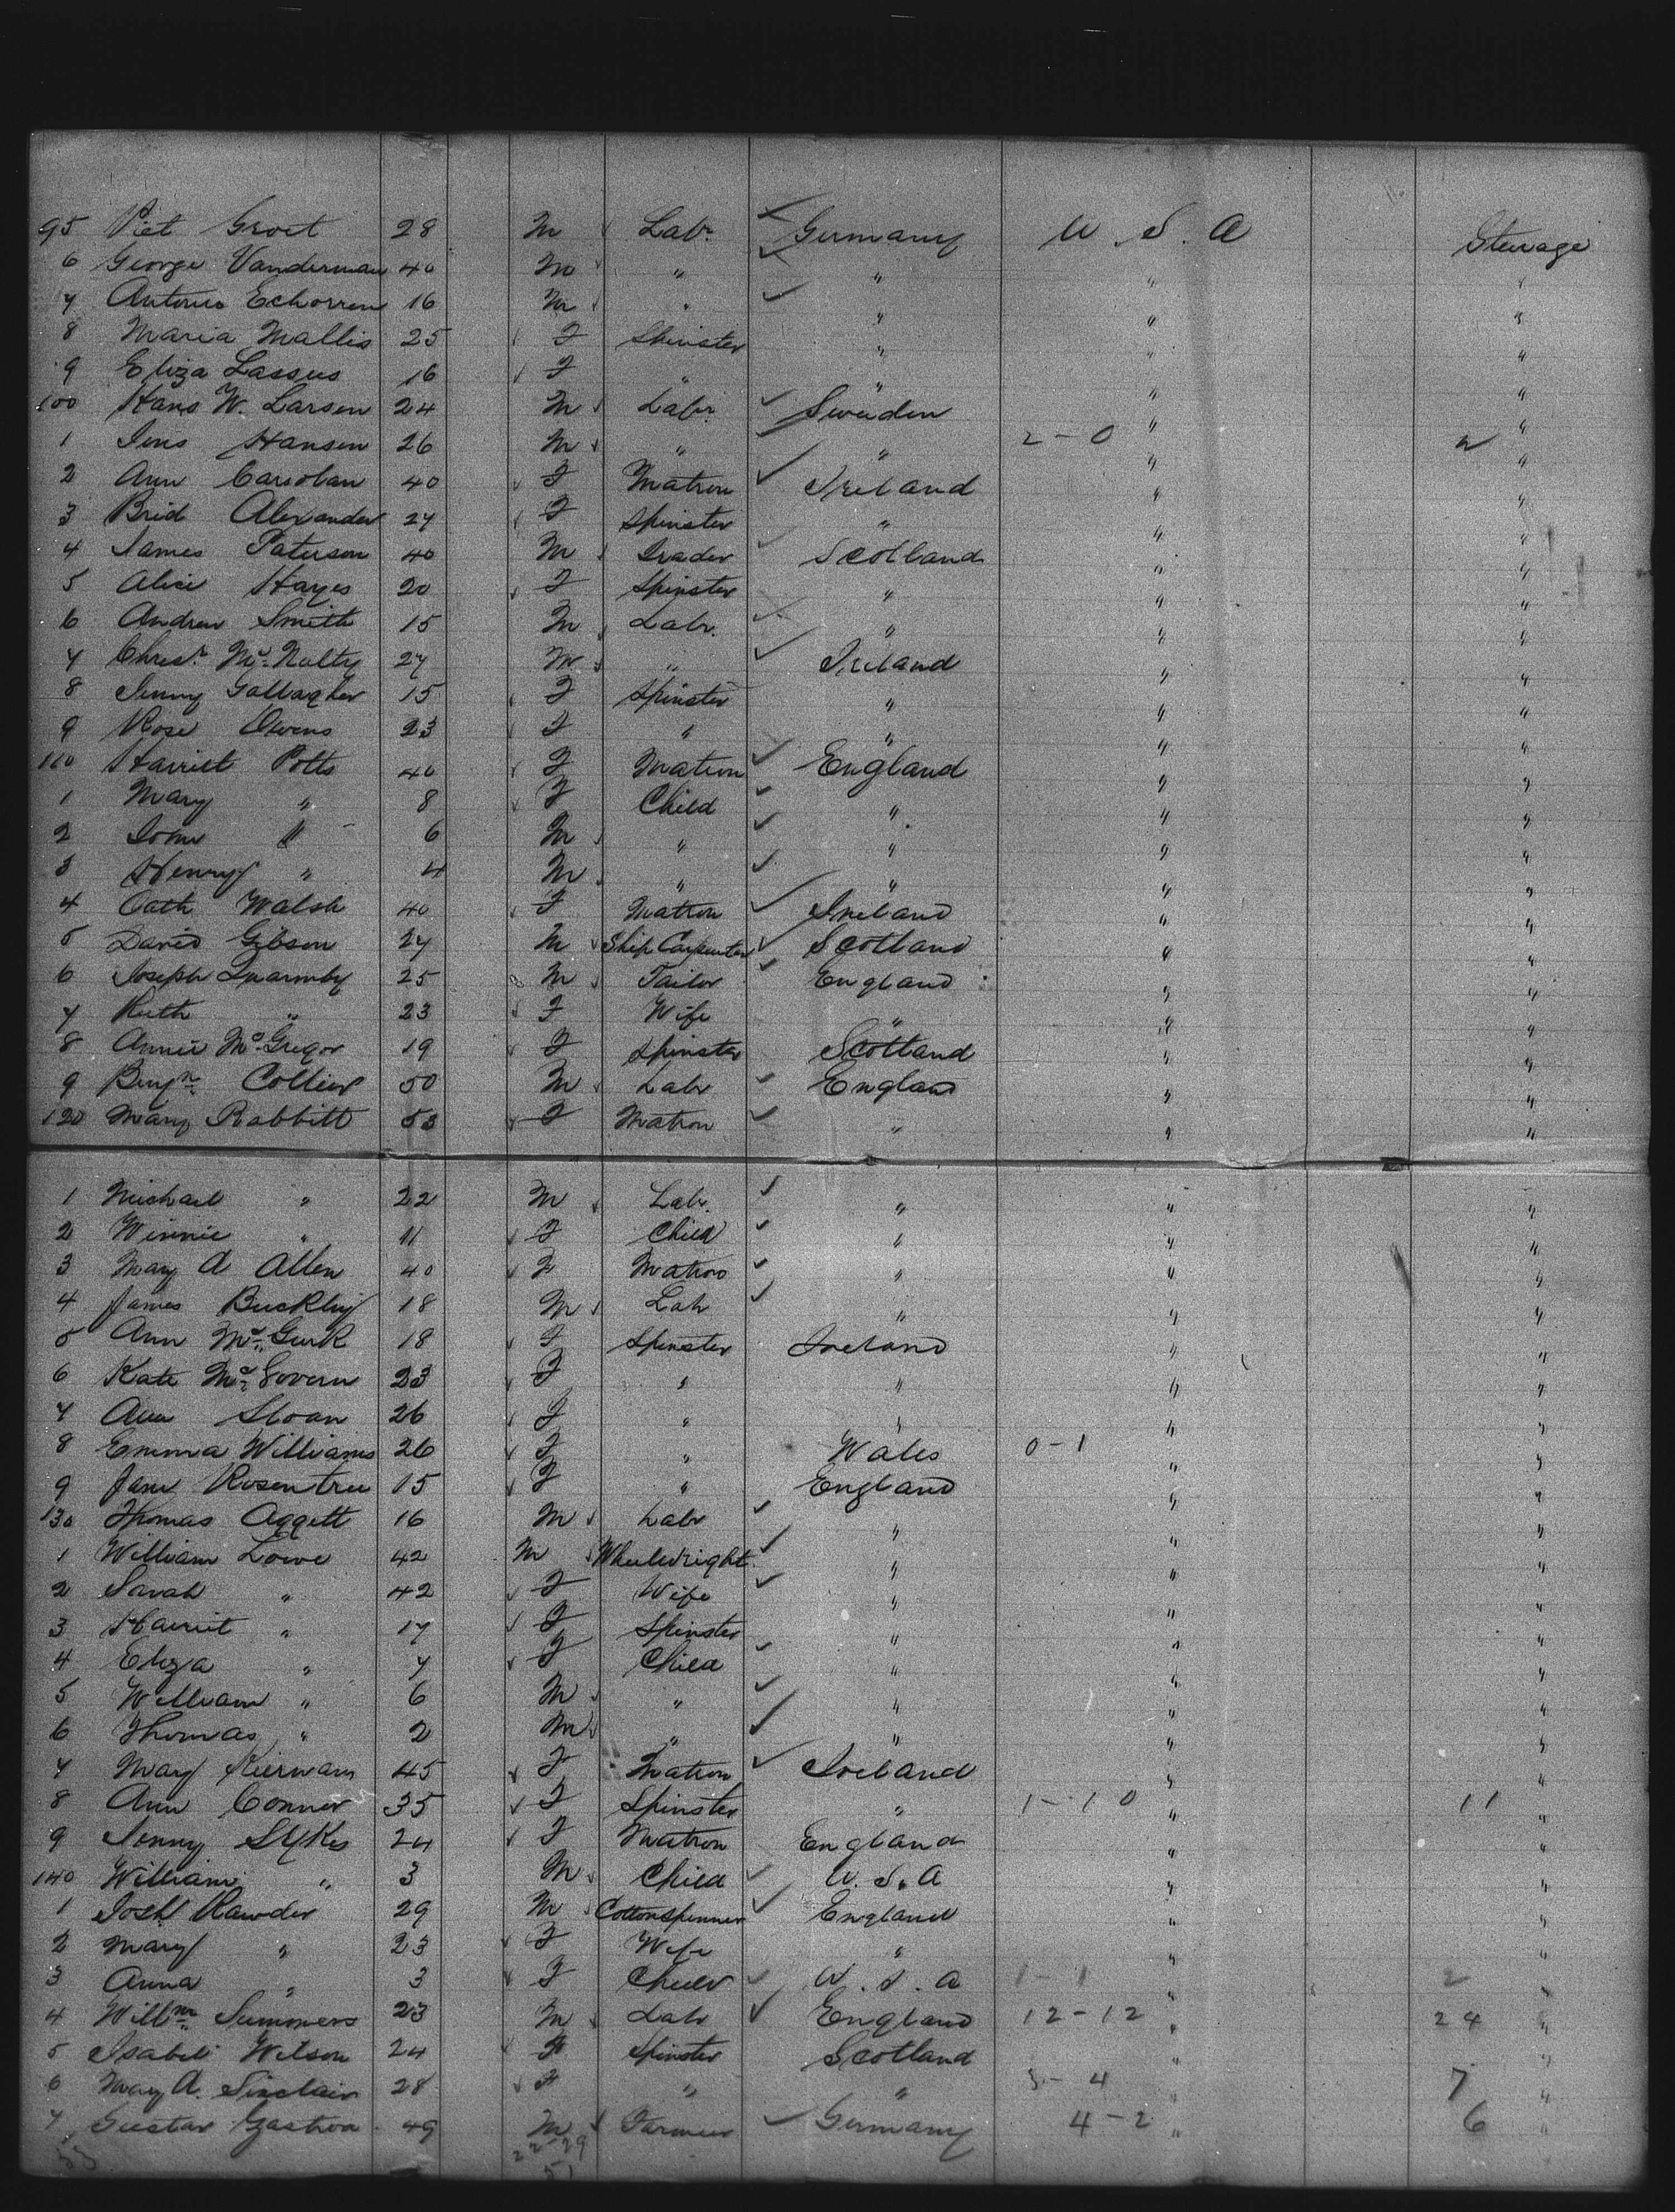 95 Piet Groet 28 M Labr. Germany U. S. A Steerage
6 George Vanderman 40 M " " " "
7 Antonio Echorren 16 M " " " "
8 Maria Mallis 25 F Spinster " " "
9 Eliza Lassus 16 F " " " "
100 Hans W. Larsen 24 M Labr. Sweden " "
1 Jens Hansen 26 M " " 2-0 " 2 "
2 Ann Carsolan 40 F Matron Ireland " "
3 Brid Alexander 27 F Spinster " " "
4 James Paterson 40 M Trader Scotland " "
5 Alice Hayes 20 F Spinster " " "
6 Andrew Smith 15 M Labr. " " "
7 Christr. McNulty 27 M " Ireland " "
8 Jenny Gallagher 15 F Spinster " " "
9 Rose Owens 23 F " " " "
110 Harriet Potts 40 F Matron England " "
1 Mary " 8 F Child " " "
2 John " 6 M " " " "
3 Henry " 4 M " " " "
4 Cath Walsh 40 F Matron Ireland " "
5 David Gibson 27 M Ship Carpenter Scotland " "
6 Joseph Quarmby 25 M Tailor England " "
7 Ruth " 23 F Wife " " "
8 Annie McGregor 19 F Spinster Scotland " "
9 Benjn. Collier 50 M Labr England " "
120 Mary Rabbitt 53 F Matron " " "
1 Michael " 22 M Labr. " " "
2 Winnie " 11 F Child " " "
3 Mary A Allen 40 F Matron " " "
4 James Buckley 18 M Labr " " "
5 Ann McGurk 18 F Spinster Ireland " "
6 Kate McGovern 23 F " " " "
7 Ann Sloan 26 F " " " "
8 Emma Williams 26 F " Wales 0-1 " "
9 Jane Rosentree 15 F " England " "
130 Thomas Aggett 16 M Labr " " "
1 William Lowe 42 M Wheelwright " " "
2 Sarah " 42 F Wife " " "
3 Harriet " 17 F Spinster " " "
4 Eliza " 7 F Child " " "
5 William " 6 M " " " "
6 Thomas " 2 M " " " "
7 Mary Kiernan 45 F Matron Ireland " "
8 Ann Connor 35 F Spinster " 1-10 " 11 "
9 Jenny Sykes 24 F Matron England " "
140 William " 3 M Child U. S. A " "
1 Josh Rawder 29 M Cotton Spinner England " "
2 Mary " 23 F Wife " " "
3 Anna " 3 F Child U. S. A 1-1 " 2 "
4 Willm. Summers 23 M Labr England 12-12 " 24 "
5 Isabel Wilson 24 F Spinster Scotland " "
6 Mary A. Sinclair 28 F " " 3-4 " 7 "
7 Gustav 49 M Farmer Germany 4-2 " 6 "
53 22-29
51